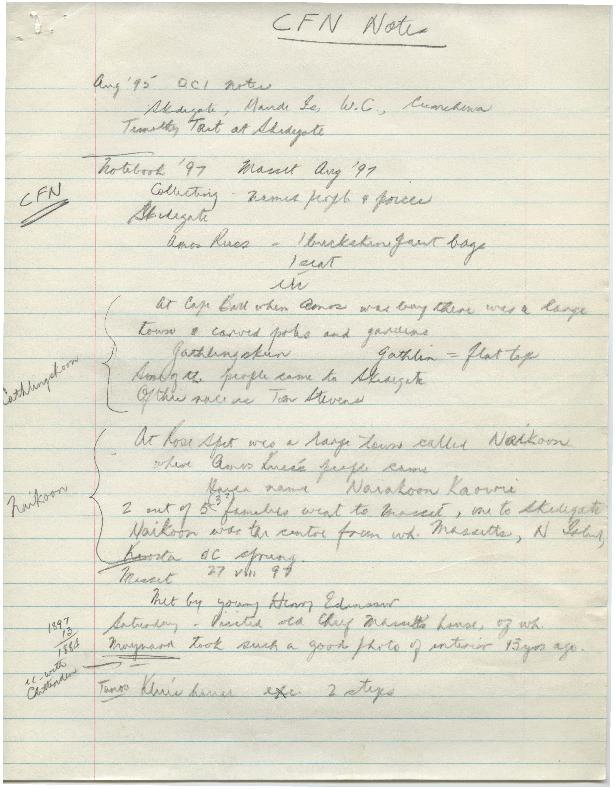 CFN Notes
Aug '95 QCI notes
Skidegate, Maude Is, W.C., Cumshewa
Timothy Tait at Skidegate
Notebook '97 Masset Aug '97
CFN
Collecting - names people &
Skidegate
Amos Russ - 1 buckskin paint bag
1 seat
etc
At Cape Ball when Amos was boy there was a large
town & carved poles and gardens
Gathlingskun Gathlin = flat top
Cathlingskoon
Some of the people came to Skidegate
Of this race is Tom Stevens
At Rose Spit was a large town called Naikoon
where Amos Russ's people came
Haida name Narakoon Kaowri
Naikoon
2 out of 5 (3?) families went to Masset, one to Skidegate
Naikoon was the centre from wh. Massetts, N Island,
Kiusta &c sprung.
Masset 27 VIII 97
Met by young Henry Edensaw
Saturday - Visited old Chief Massett's house, of wh.
Maynard took such a good photo of interior 13 yrs ago.
1897
13
1884
ie - with
Chittenden
house etc 2 steps